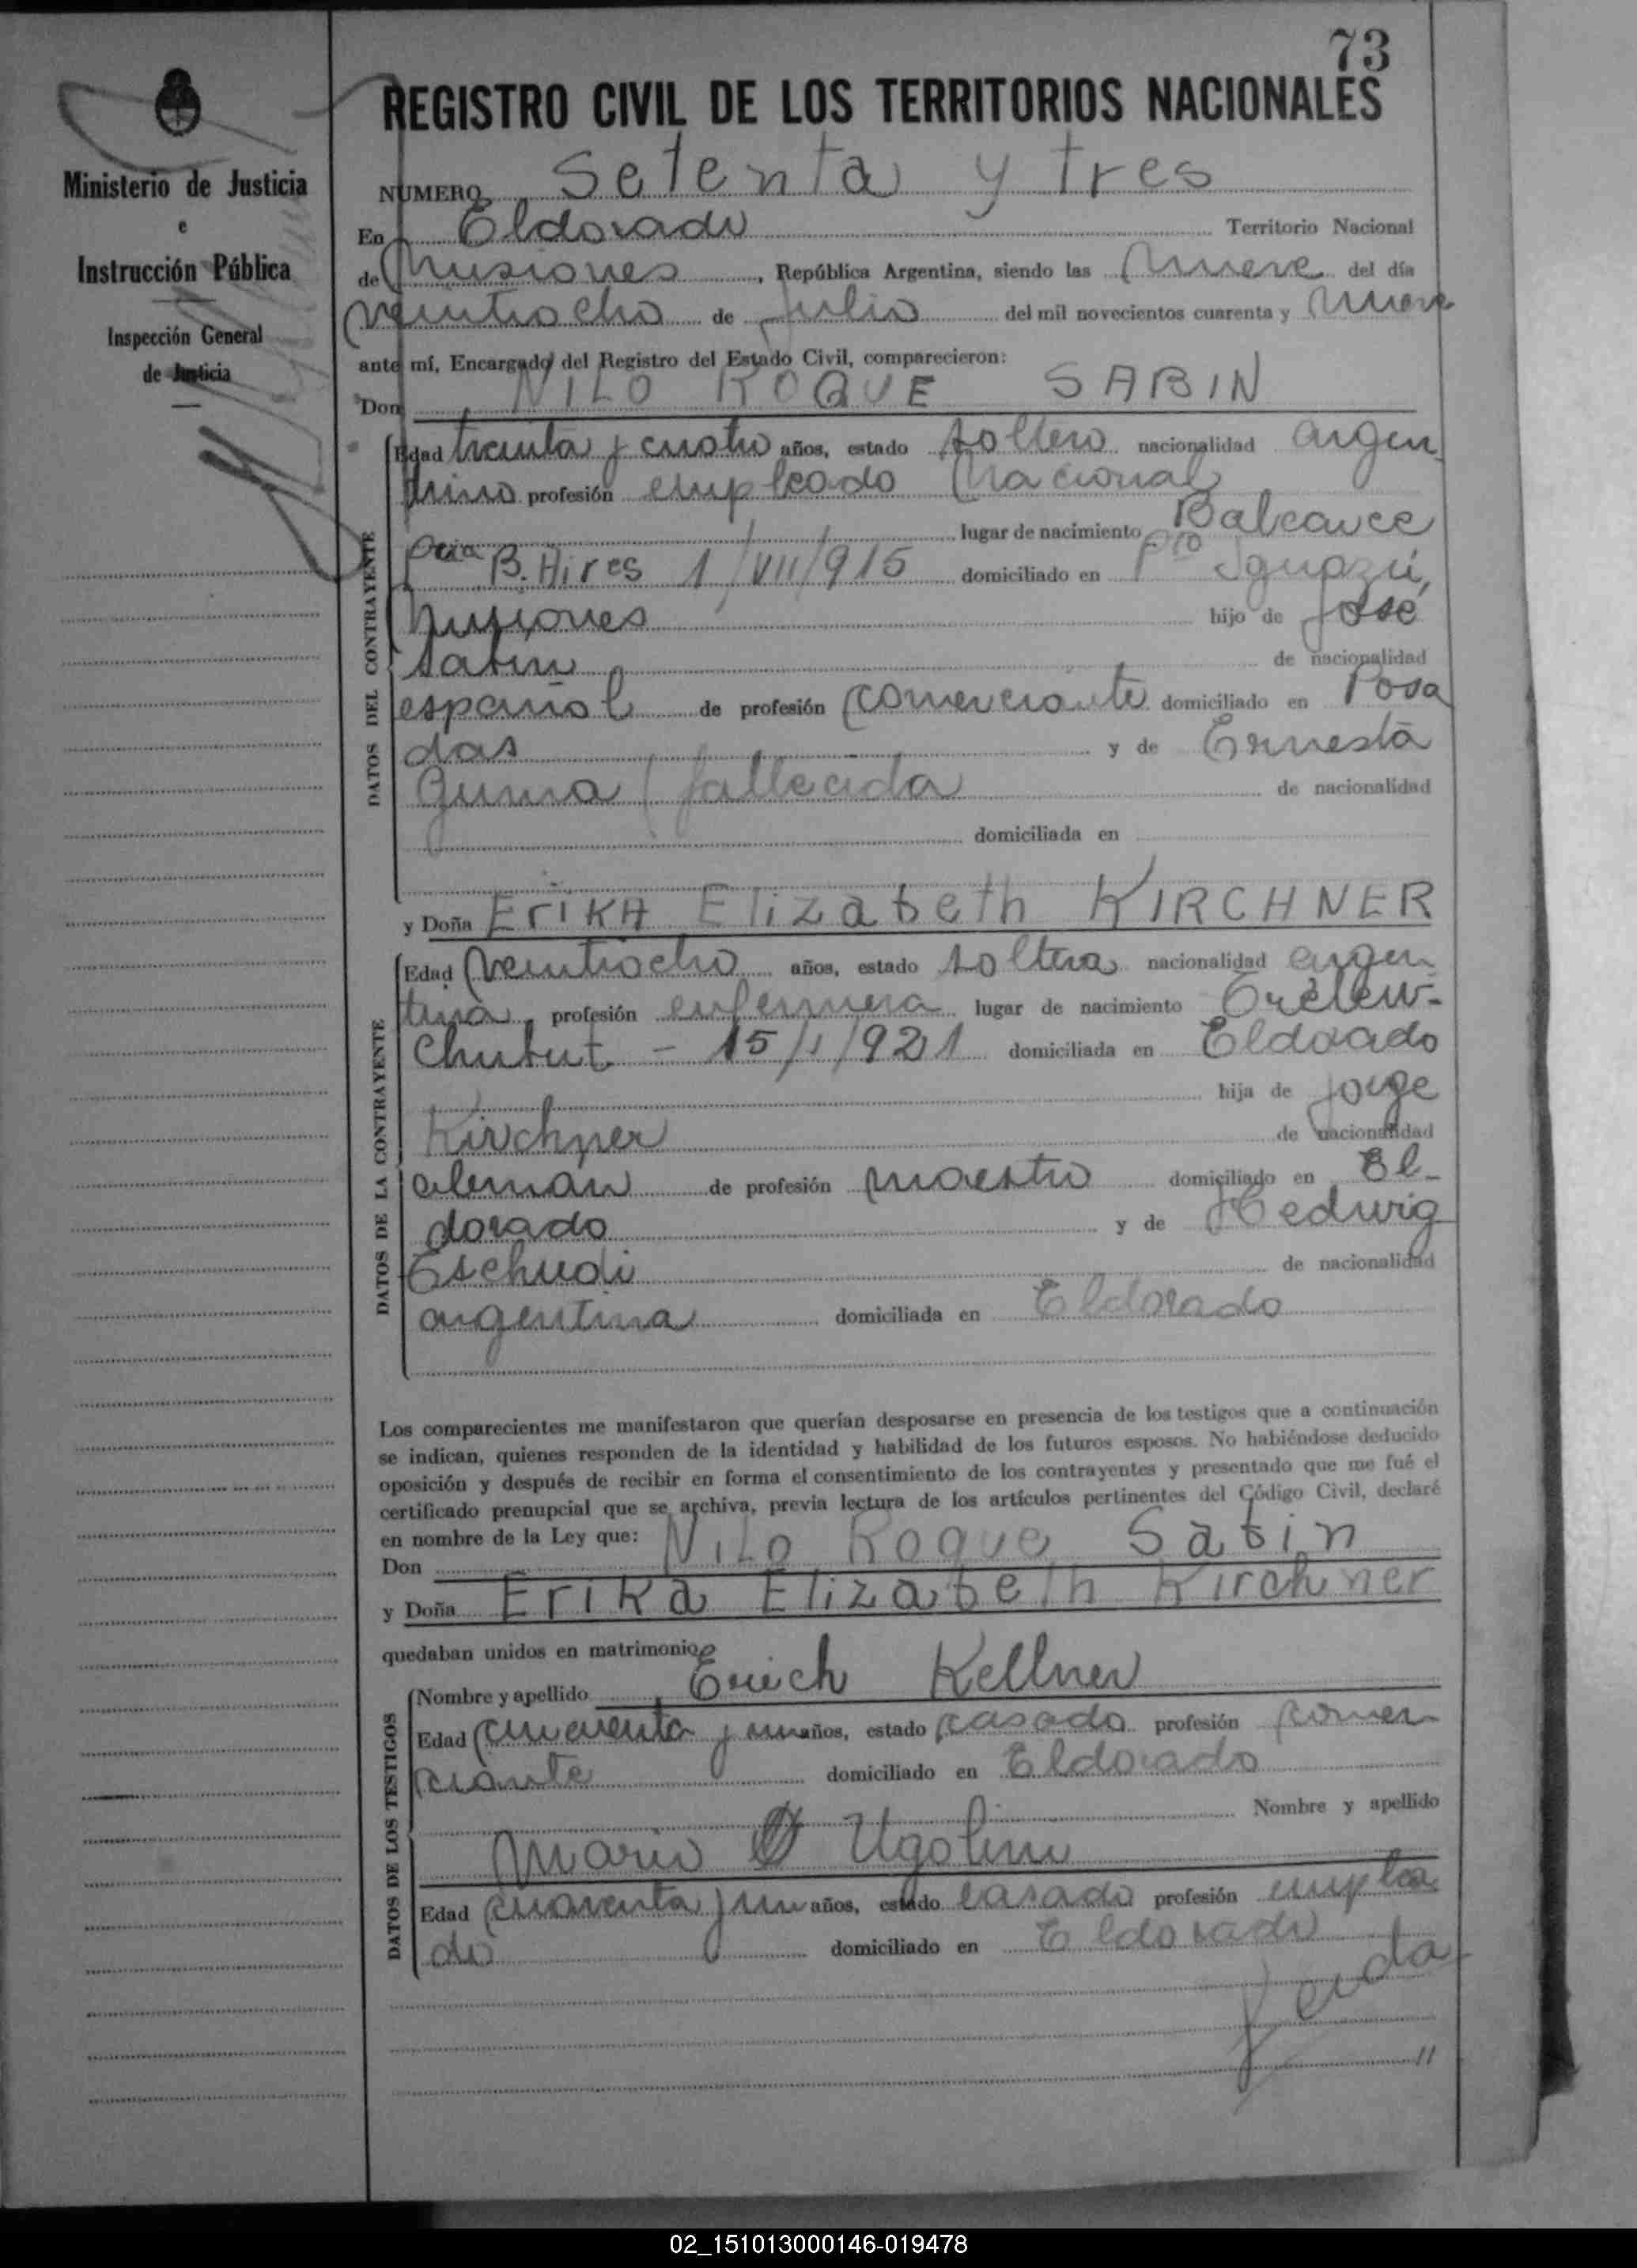 73
Ministerio de Justicia
e
Instrucción Pública
Inspección General
de Justicia
REGISTRO CIVIL DE LOS TERRITORIOS NACIONALES
NUMERO Setenta y tres
En Eldorado Territorio Nacional
de Misiones, República Argentina, siendo las nueve del día
veintiocho de Julio del mil novecientos cuarenta y nueve
ante mí, Encargado del Registro del Estado Civil, comparecieron:
Don NILO ROQUE SABIN
DATOS DEL CONTRAYENTE
Edad treinta y cuatro años, estado soltero nacionalidad argen
tino profesión empleado Nacional
lugar de nacimiento Balcarce
Pcia B. Aires 1/VII/915 domiciliado en Pto Iguazú,
Misiones hijo de José
Sabin de nacionalidad
español de profesión comerciante domiciliado en Posa
das y de Ernesta
fallecida de nacionalidad
domiciliada en
y Doña ERIKA ElizabetH KIRCHNER
DATOS DE LA CONTRAYENTE
Edad veintiocho años, estado soltera nacionalidad argen
tina, profesión enfermera lugar de nacimiento Trelew-
Chubut - 15/1/921 domiciliada en Eldorado
hija de Jorge
Kirchner de nacionalidad
aleman de profesión maestro domiciliado en El-
dorado y de Hedwig
Tschudi de nacionalidad
argentina domiciliada en Eldorado
Los comparecientes me manifestaron que querían desposarse en presencia de los testigos que a continuación
se indican, quienes responden de la identidad y habilidad de los futuros esposos. No habiéndose deducido
oposición y después de recibir en forma el consentimiento de los contrayentes y presentado que me fué el
certificado prenupcial que se archiva, previa lectura de los artículos pertinentes del Código Civil, declaré
en nombre de la Ley que:
Don Nilo Roque Sabin
y Doña Erika Elizabeth Kirchner
quedaban unidos en matrimonio
DATOS DE LOS TESTIGOS
Nombre y apellido Erich Kellner
Edad cincuenta y un años, estado casado profesión comer
ciante domiciliado en Eldorado
Nombre y apellido
Mario Ugolini
Edad cuarenta y un años, estado casado profesión emplea
do domiciliado en Eldorado
Leida
//
02_151013000146-019478